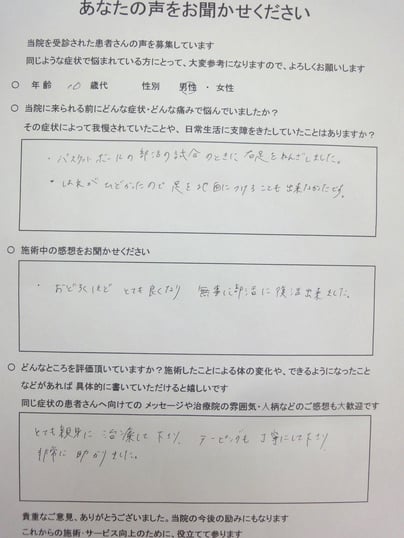 あなたの声をお聞かせください
当院を受診された患者さんの声を募集しています
同じような症状で悩まれている方にとって、大変参考になりますので、よろしくお願いします
○ 年齢 10 歳代 性別 男性 ・ 女性
○ 当院に来られる前にどんな症状・どんな痛みで悩んでいましたか？
その症状によって我慢されていたことや、日常生活に支障をきたしていたことはありますか？
・バスケットボールの部活の試合のときに右足をねんざしました。
・はれがひどかったので足を地面につけることも出来なかたです。
○ 施術中の感想をお聞かせください
・おどろくほどとても良くなり 無事に部活に復活出来ました。
○ どんなところを評価頂いていますか？施術したことによる体の変化や、できるようになったこと
などがあれば 具体的に書いていただけると嬉しいです
同じ症状の患者さんへ向けての メッセージや治療院の雰囲気・人柄などのご感想も大歓迎です
とても親身に治療して下さり、テーピングも丁寧にして下さり
非常に助かりました。
貴重なご意見、ありがとうございました。当院の今後の励みにもなります
これからの施術・サービス向上のために、役立てて参ります